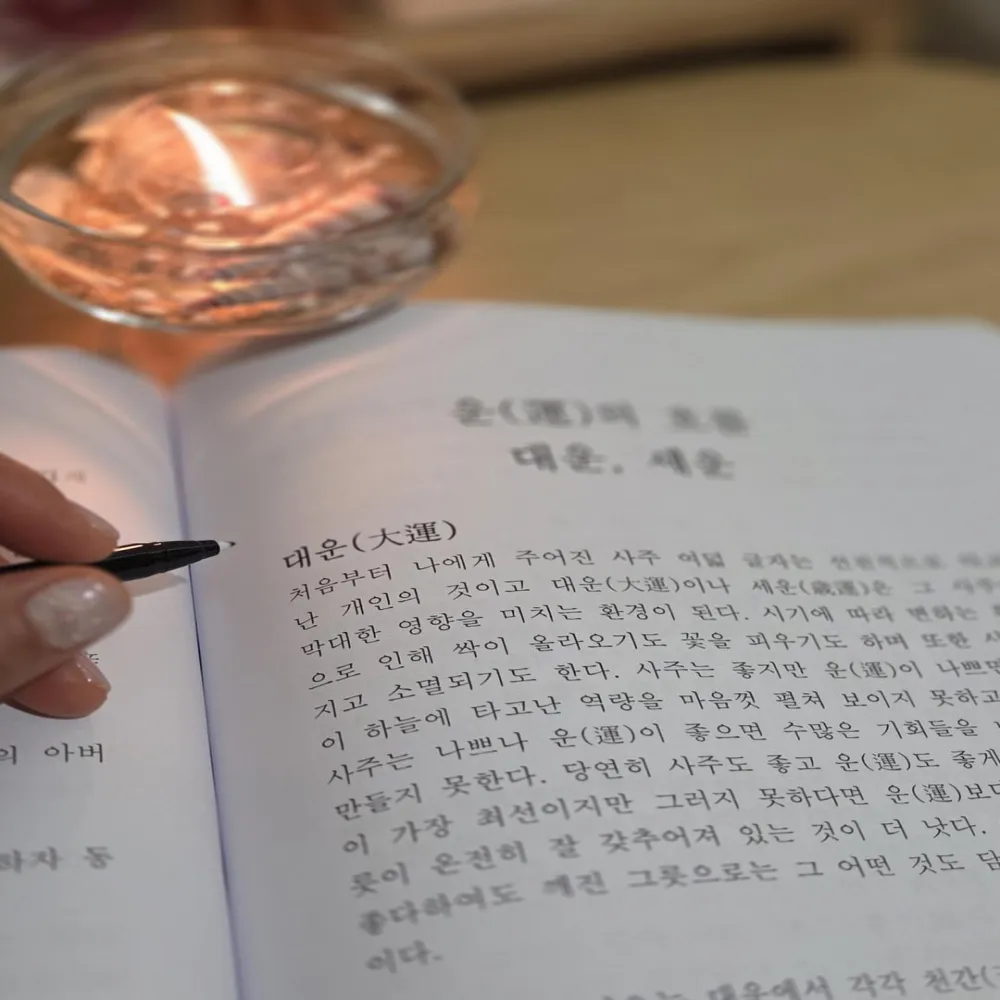 운(運)의 흐름
대운, 세운
대운(大運)
처음부터 나에게 주어진 사주 여덟 글자는
난 개인의 것이고 대운(大運)이나 세운(歲運)은 그 사주
막대한 영향을 미치는 환경이 된다. 시기에 따라 변하는
으로 인해 싹이 올라오기도 꽃을 피우기도 하며 또한
지고 소멸되기도 한다. 사주는 좋지만 운(運)이 나쁘면
이 하늘에 타고난 역량을 마음껏 펼쳐 보이지 못하고
사주는 나쁘나 운(運)이 좋으면 수많은 기회들을
만들지 못한다. 당연히 사주도 좋고 운(運)도 좋게
이 가장 최선이지만 그러지 못하다면 운(運)보다
릇이 온전히 잘 갖추어져 있는 것이 더 낫다.
좋다하여도 깨진 그릇으로는 그 어떤 것도 담
이다.
대운에서 각각 천간(
의 아버
하자 동